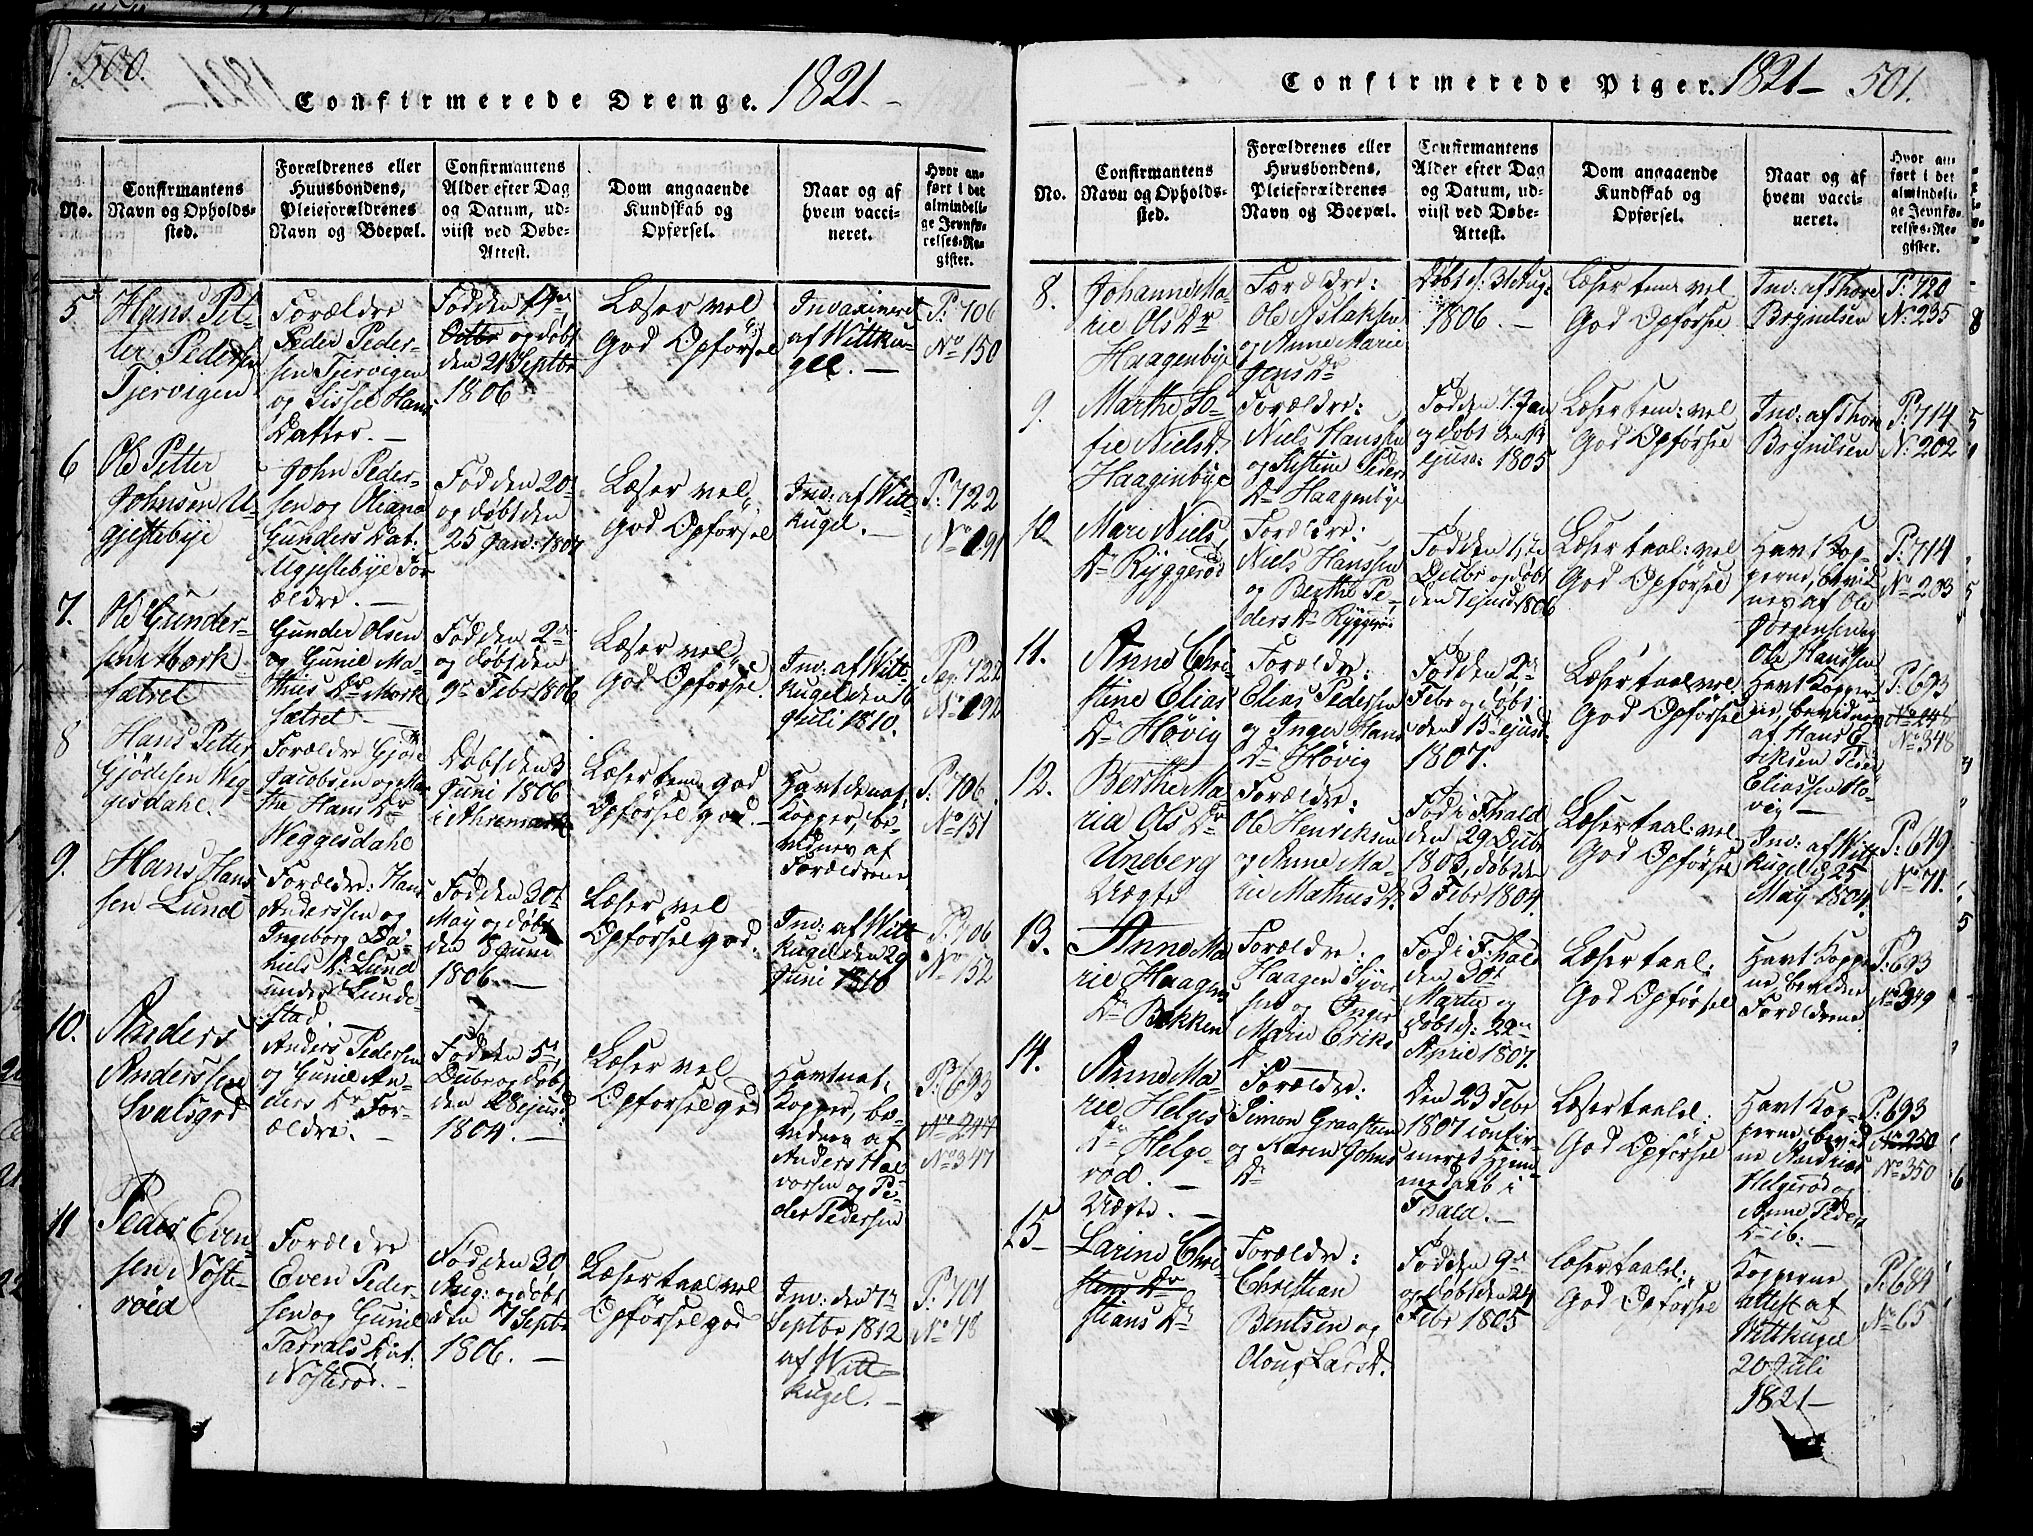 500.
Confirmerede Drenge. 1821 -
No.
Confirmantens
Navn og Opholds-
sted.
Forældrenes eller
Huusbondens,
Pleieforældrenes
Navn og Boepæl.
Confirmantens
Alder efter Dag
og Datum, ud-
viist ved Døbe-
Attest.
Dom angaaende
Kundskab og
Opførsel.
Naar og af
hvem vacci-
neret.
Hvor an-
ført i det
almindeli-
ge Jevnfø-
relses-Re-
gister.
5
Hans Pet-
ter Pedersen
Tjervigen
Forældre
Peder Peder-
sen Tjervigen
og Sissel Hans
Datter. -
Født den
Octbr og døbt
den 21 Septbr
1806
Læser vel
God Opførsel
Invaxineret
af Wittku-
gel. -
P: 706
No 150
6
Ole Petter
Johnsen U-
gjestebye
John Peder-
sen og Oliana
Gunders Dat:
Ugjestebye For
ældre. -
Født den 20
og døbt den
25 Jan: 1807
Læser vel
God Opførsel
Inv: af Witt-
kugel. -
P: 722
No 191
7.
Ole Gunder-
sen Mørk-
sætret
Gunder Olsen
og Gunil Ma-
thies Dr Mørk
sætret -
Født den 2
og døbt den
9 Febr 1806
Læser vel
God Opførsel.
Inv: af Witt-
kugel den 16
Juli 1810.
Pag. 722
No 192
8
Hans Petter
Gjødesen Weg-
gesdahl.
Forældre Gjøde
Jacobsen og Mar
the Hans Dr
Weggesdahl
Døbt den 3
Juni 1806
i Ahremark
Læser tem: god
Opførsel god. -
Havt de nat:
Kopper, be-
vidnes af
Forældrene
P: 706.
No 151
9.
Hans Hans-
sen Lund
Forældre: Hans
Anderssen og
Ingeborg Da-
niels Dr Lund
under Lunde-
stad.
Født den 30
May og døbt
den 8 Juni
1806. -
Læser vel
Opførsel god.
Inv: af Witt
kugel den 29
Juni 1810
P: 706
No 152
10.
Anders
Anderssen
Svalsgod
Anders Pedersen
og Gunil An-
ders Dr For-
ældre. -
Født den 5
Decbr og døbt
den 28 ejusd
1804. -
Læser vel
Opførsel god
Havt nat:
Kopper, be-
vidnes af
Anders Hal
vorsen og Pe-
der Pedersen
P: 693
No 247
No 347
11
Peder Even-
sen Nøste-
røed
Forældre
Even Peder-
sen og Gunil
Tarrals Dat.
Nøsterød. -
Født den 30
Aug: og døbt
den 7 Septbr
1806. -
Læser taal: vel
Opførsel god
Inv: den 7
Septbr 1812
af Witt-
kugel. -
P: 701
No 48
Confirmerede Piger. 1821 - 501.
No.
Confirmantens
Navn og Opholds-
sted.
Forældrenes eller
Huusbondens,
Pleieforældrenes
Navn og Boepæl.
Confirmantens
Alder efter Dag
og Datum, ud-
viist ved Døbe-
Attest.
Dom angaaende
Kundskab og
Opførsel.
Naar og af
hvem vacci-
neret.
Hvor an-
ført i det
almindeli-
ge Jevnfø-
relses-Re-
gister.
8.
Johanne Ma-
rie Ols Dr
Haagenbye
Forældre:
Ole Aslaksen
og Anne Marie
Jens Dr
Døbt d: 31 Aug:
1806. -
Læser tem: vel
God Opførsel
Inv: af Thore
Brynilsen
P: 720
No: 235
9.
Marthe So-
fie Niels Dr
Haagenbye
Forældre:
Niels Hanssen
og Kistine Peders
Dr Haagenbye
Født den 7 Jan
og døbt den 13
ejusd: 1805
Læser tem: vel
God Opførsel
Inv: af Thore
Brynilsen
P: 714
No: 202
10.
Mari Niels
Dr Ryggerød
Forældre:
Niels Hanssen
og Berthe Pe-
ders Dr Ryggerød
Født den 1
Decbr og døbt
den 7 ejusd 1806
Læser taal: vel
God Opførsel
Havt Kop-
perne, bevid-
nes af Ole
Jørgensen og
Ole Hanssen
P: 714
No 203
11.
Anne Chri-
stine Elias
Dr Høvig
Forældre:
Elias Pederssen
og Inger Hans
Dr Høvig
Født den 2
Febr og døbt
den 15 ejusd.
1807.
Læser taal vel
God Opførsel
Havt Kopper-
ne, bevidnes
af Hans E-
riksen
Eliassen Hø-
vig -
P: 693
No 248
No 348
12.
Berthe Ma-
ria Ols Dr
Uneberg
Uægte
Forældre:
Ole Henriksen
og Anne Ma-
rie Mathies Dr.
Født i Fhald
den 29 Decbr
1803, døbt den
3 Febr 1804.
Læser taal: vel
God Opførsel
Inv: af Witt
kugel d 25
May 1804.
P: 649
No 71.
13.
Anne Ma-
rie Haagens
Dr Bakken
Forældre:
Haagen Syver
sen og Inger
Marie Eriks
Dr
Født i F:hald
den 30
Marts og
døbt d: 22
April 1807.
Læser taal:
God Opførsel
Havt Kopper
ne, bevidne
Forældrene.
P: 693
No 349
14.
Anne Ma-
rie Helges
Dr Helge-
rød. -
Uægte. -
Forældre:
Simon Graasteen
og Karen Johns
Dr
Den 23 Febr
1807 confir-
meret Hjem-
medaab i
Fhald. -
Læser taalel:
God Opførsel
Havt Kop-
perne, bevid
ne Andreas
Helgerød og
Anne Peders
Dr ib: -
P: 693
No 250
No 350
15 -
Larine Chri-
stens Dr
stians Dr
Forældre:
Christian
Bentsen og
Oloug Lars Dr.
Født den 9
og døbt den 24
Febr 1805
Læser taalel:
God Opførsel
Kopperne
attest af
Wittkugel
20 Juli
1821 -
P: 684
No 65